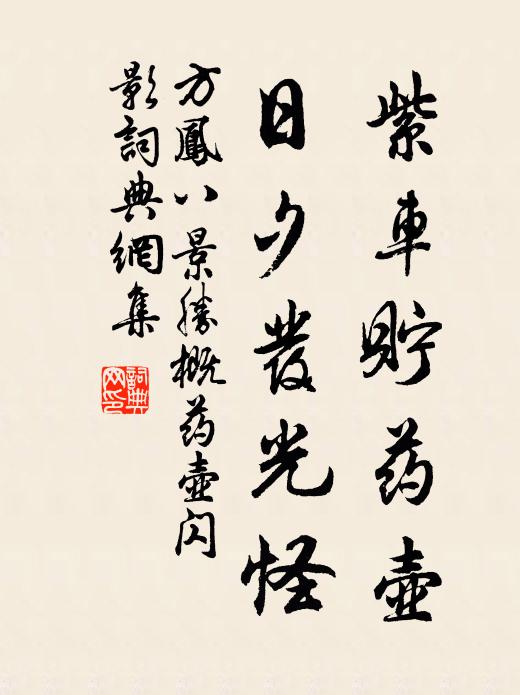 紫車貯药壺
日夕發光怪
方鳳八景勝概药壺闪
影詞典網集
詞典
网印